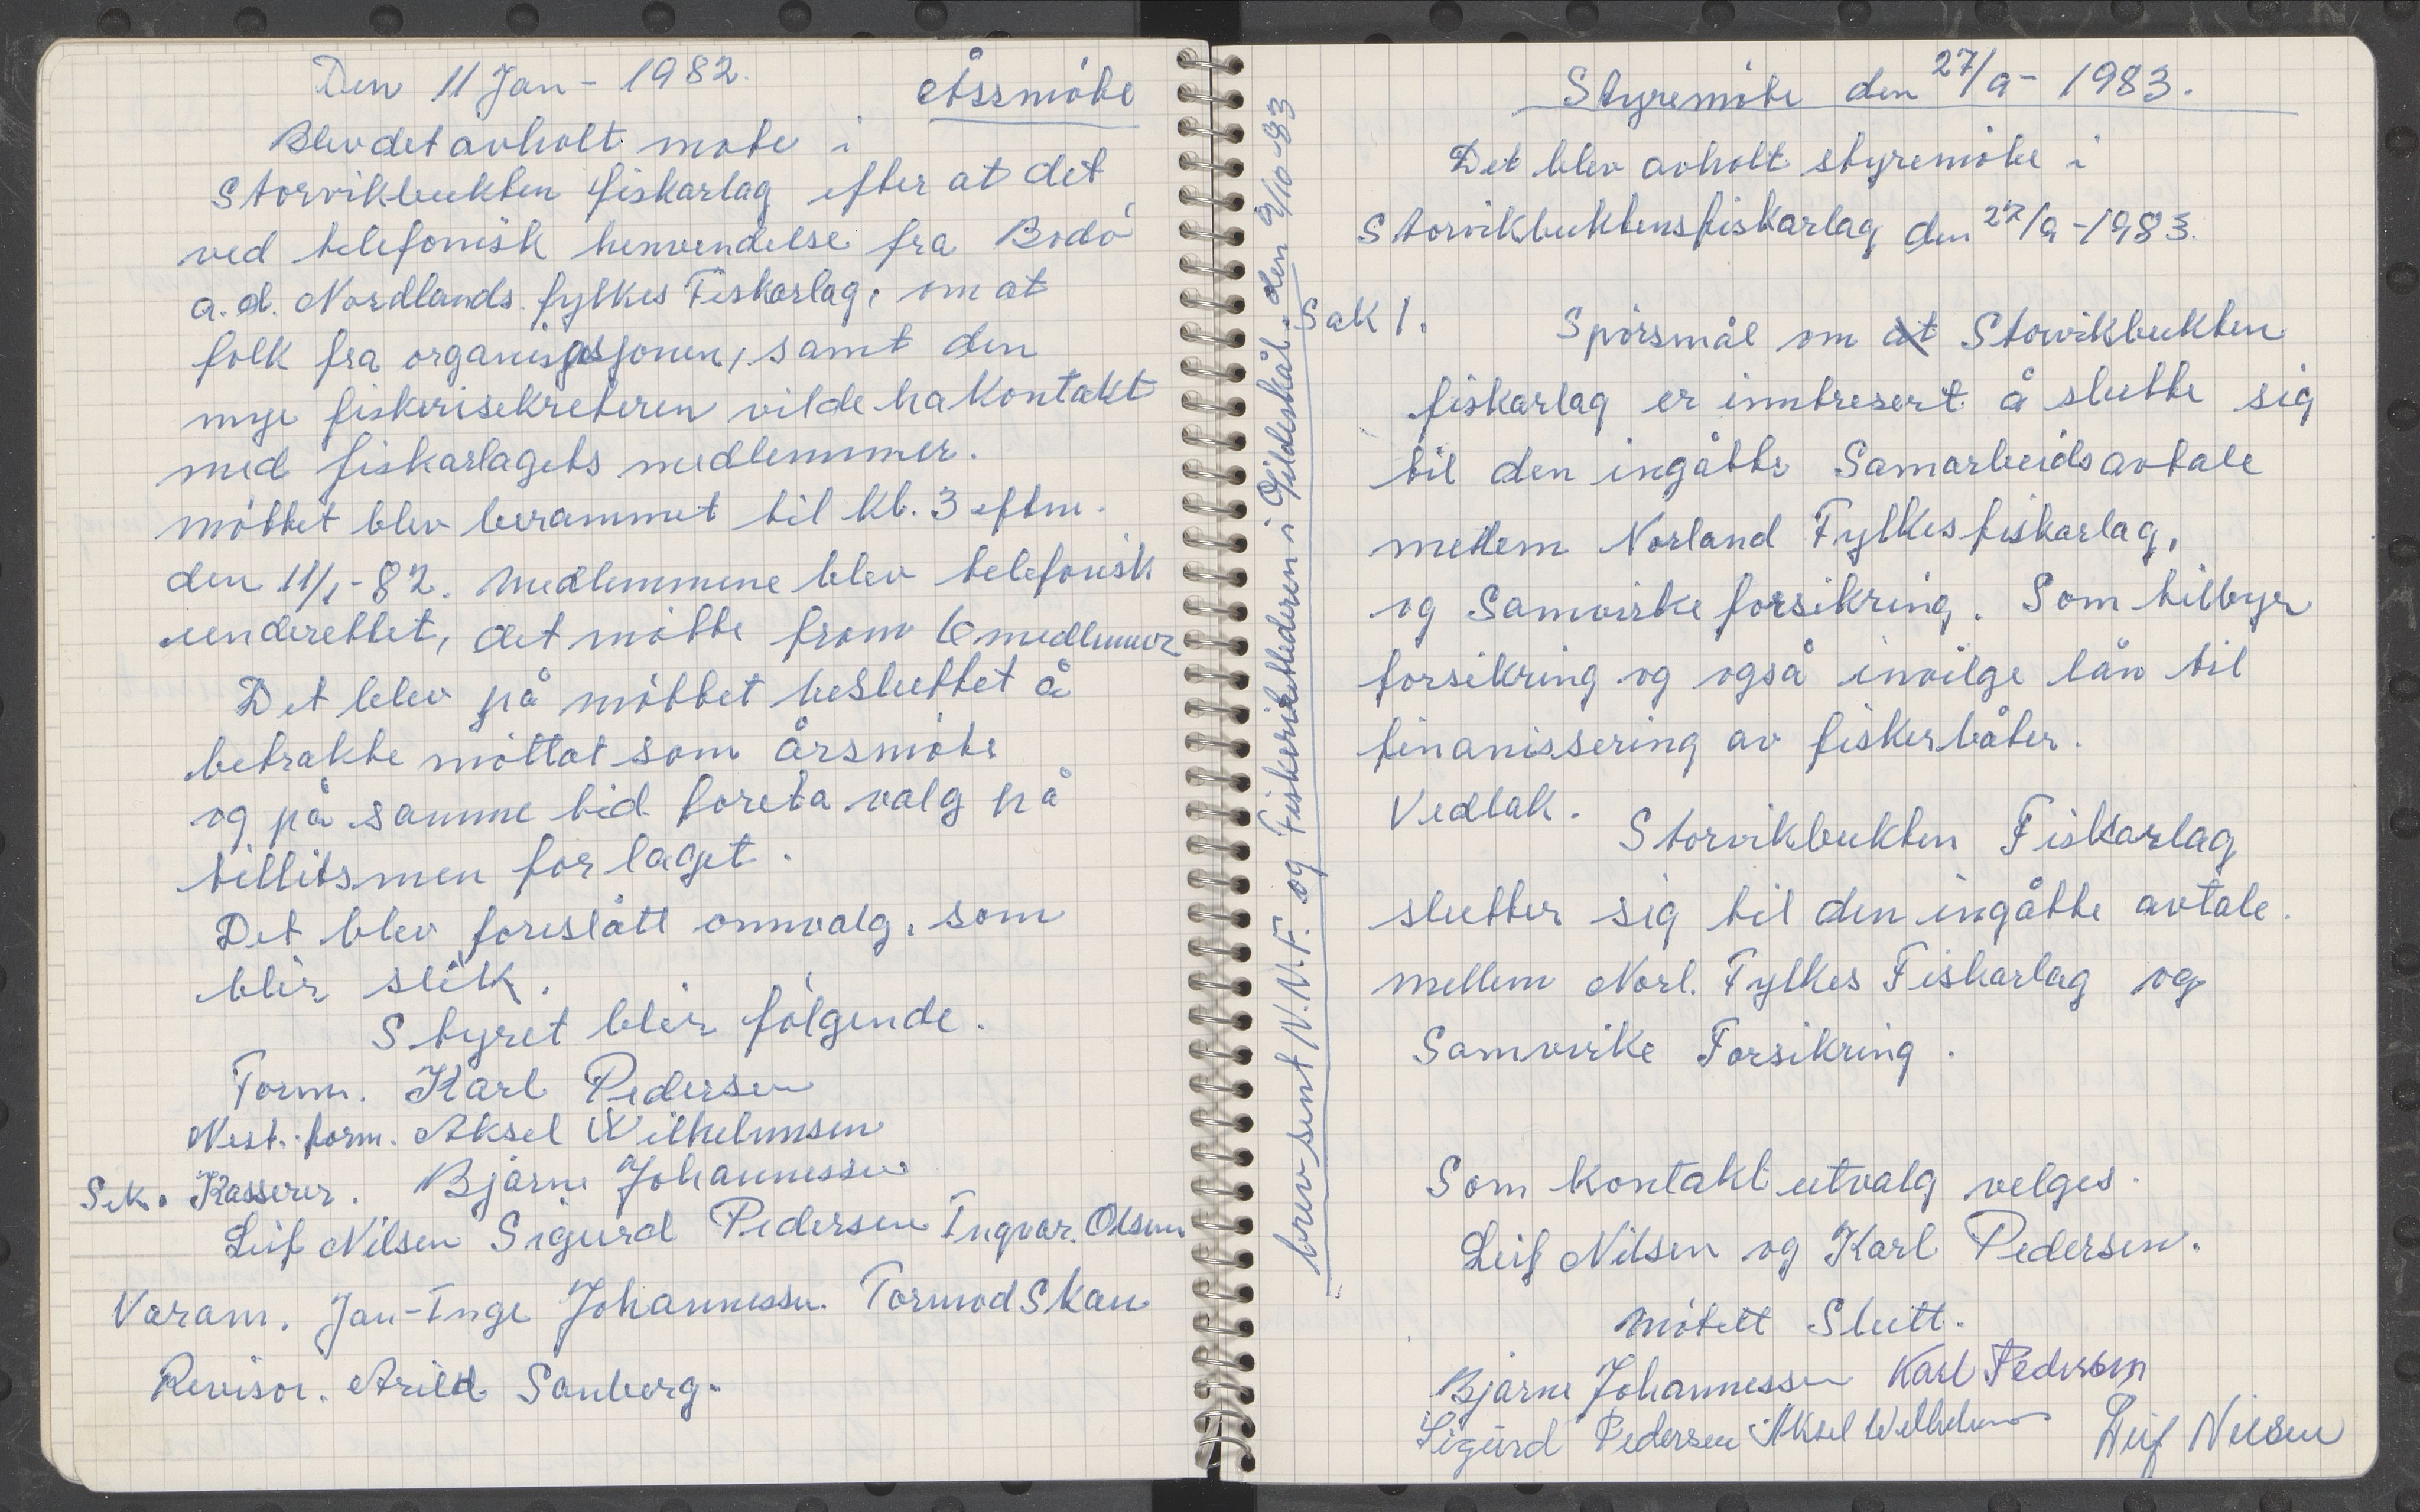 Den 11 Jan - 1982.
Årsmöte
Blev det avholt möte i
Storvikbukten fiskarlag efter at det
ved telefonisk henvendelse fra Bodö
a.d. Nordlands fylkes Fiskarlag, om at
folk fra organisasjonen, samt den
nye fiskerisekreteren vilde ha kontakt
med fiskarlagets medlemmer.
möttet blev berammet til kl. 3 eftm.
den 11/1-82. Medlemmene blev telefonisk
underettet, det mötte from 6 medlemmer
Det blev på möttet besluttet å
betrakte möttat som årsmöte
og på samme tid foreta valg på
tillitsmen for laget.
Det blev foreslått omvalg, som
blir slik.
Styret blir fölgende.
Form. Karl Pedersen
Nest. form. Aksel Wilhelmsen
Sek. Kasserer. Bjarne Johannessen
Leif Nilsen Sigurd Pedersen Ingvar. Olsen
Varam. Jan-Inge Johannessen. Tormod Skau
Revisor. Arild Sanberg.
brev sent N.N.F. og Fiskerirettlederen i Gildeskål. den 9/10-83
Styremöte den 27/9- 1983.
Det blev avholt styremöte i
Storvikbuktens fiskarlag den 27/9-1983.
Sak 1. Spörsmål om at Storvikbukten
fiskarlag er inntresert å slutte sig
til den ingåtte Samarbeidsavtale
mellem Norland Fylkesfiskarlag,
og Samvirke forsikring. Som tilbyr
forsikring og også invilge lån til
finanissering av fiskerbåter.
Vedtak. Storvikbukten Fiskarlag
slutter sig til den ingåtte avtale.
mellem Norl. Fylkes Fiskarlag og
Samvirke Forsikring.
Som kontakt utvalg velges.
Leif Nilsen og Karl Pedersen.
mötett Slutt.
Bjarne Johannessen Karl Pedersen
Sigurd Pedersen Aksel Wilhelmsen Leif Nilsen